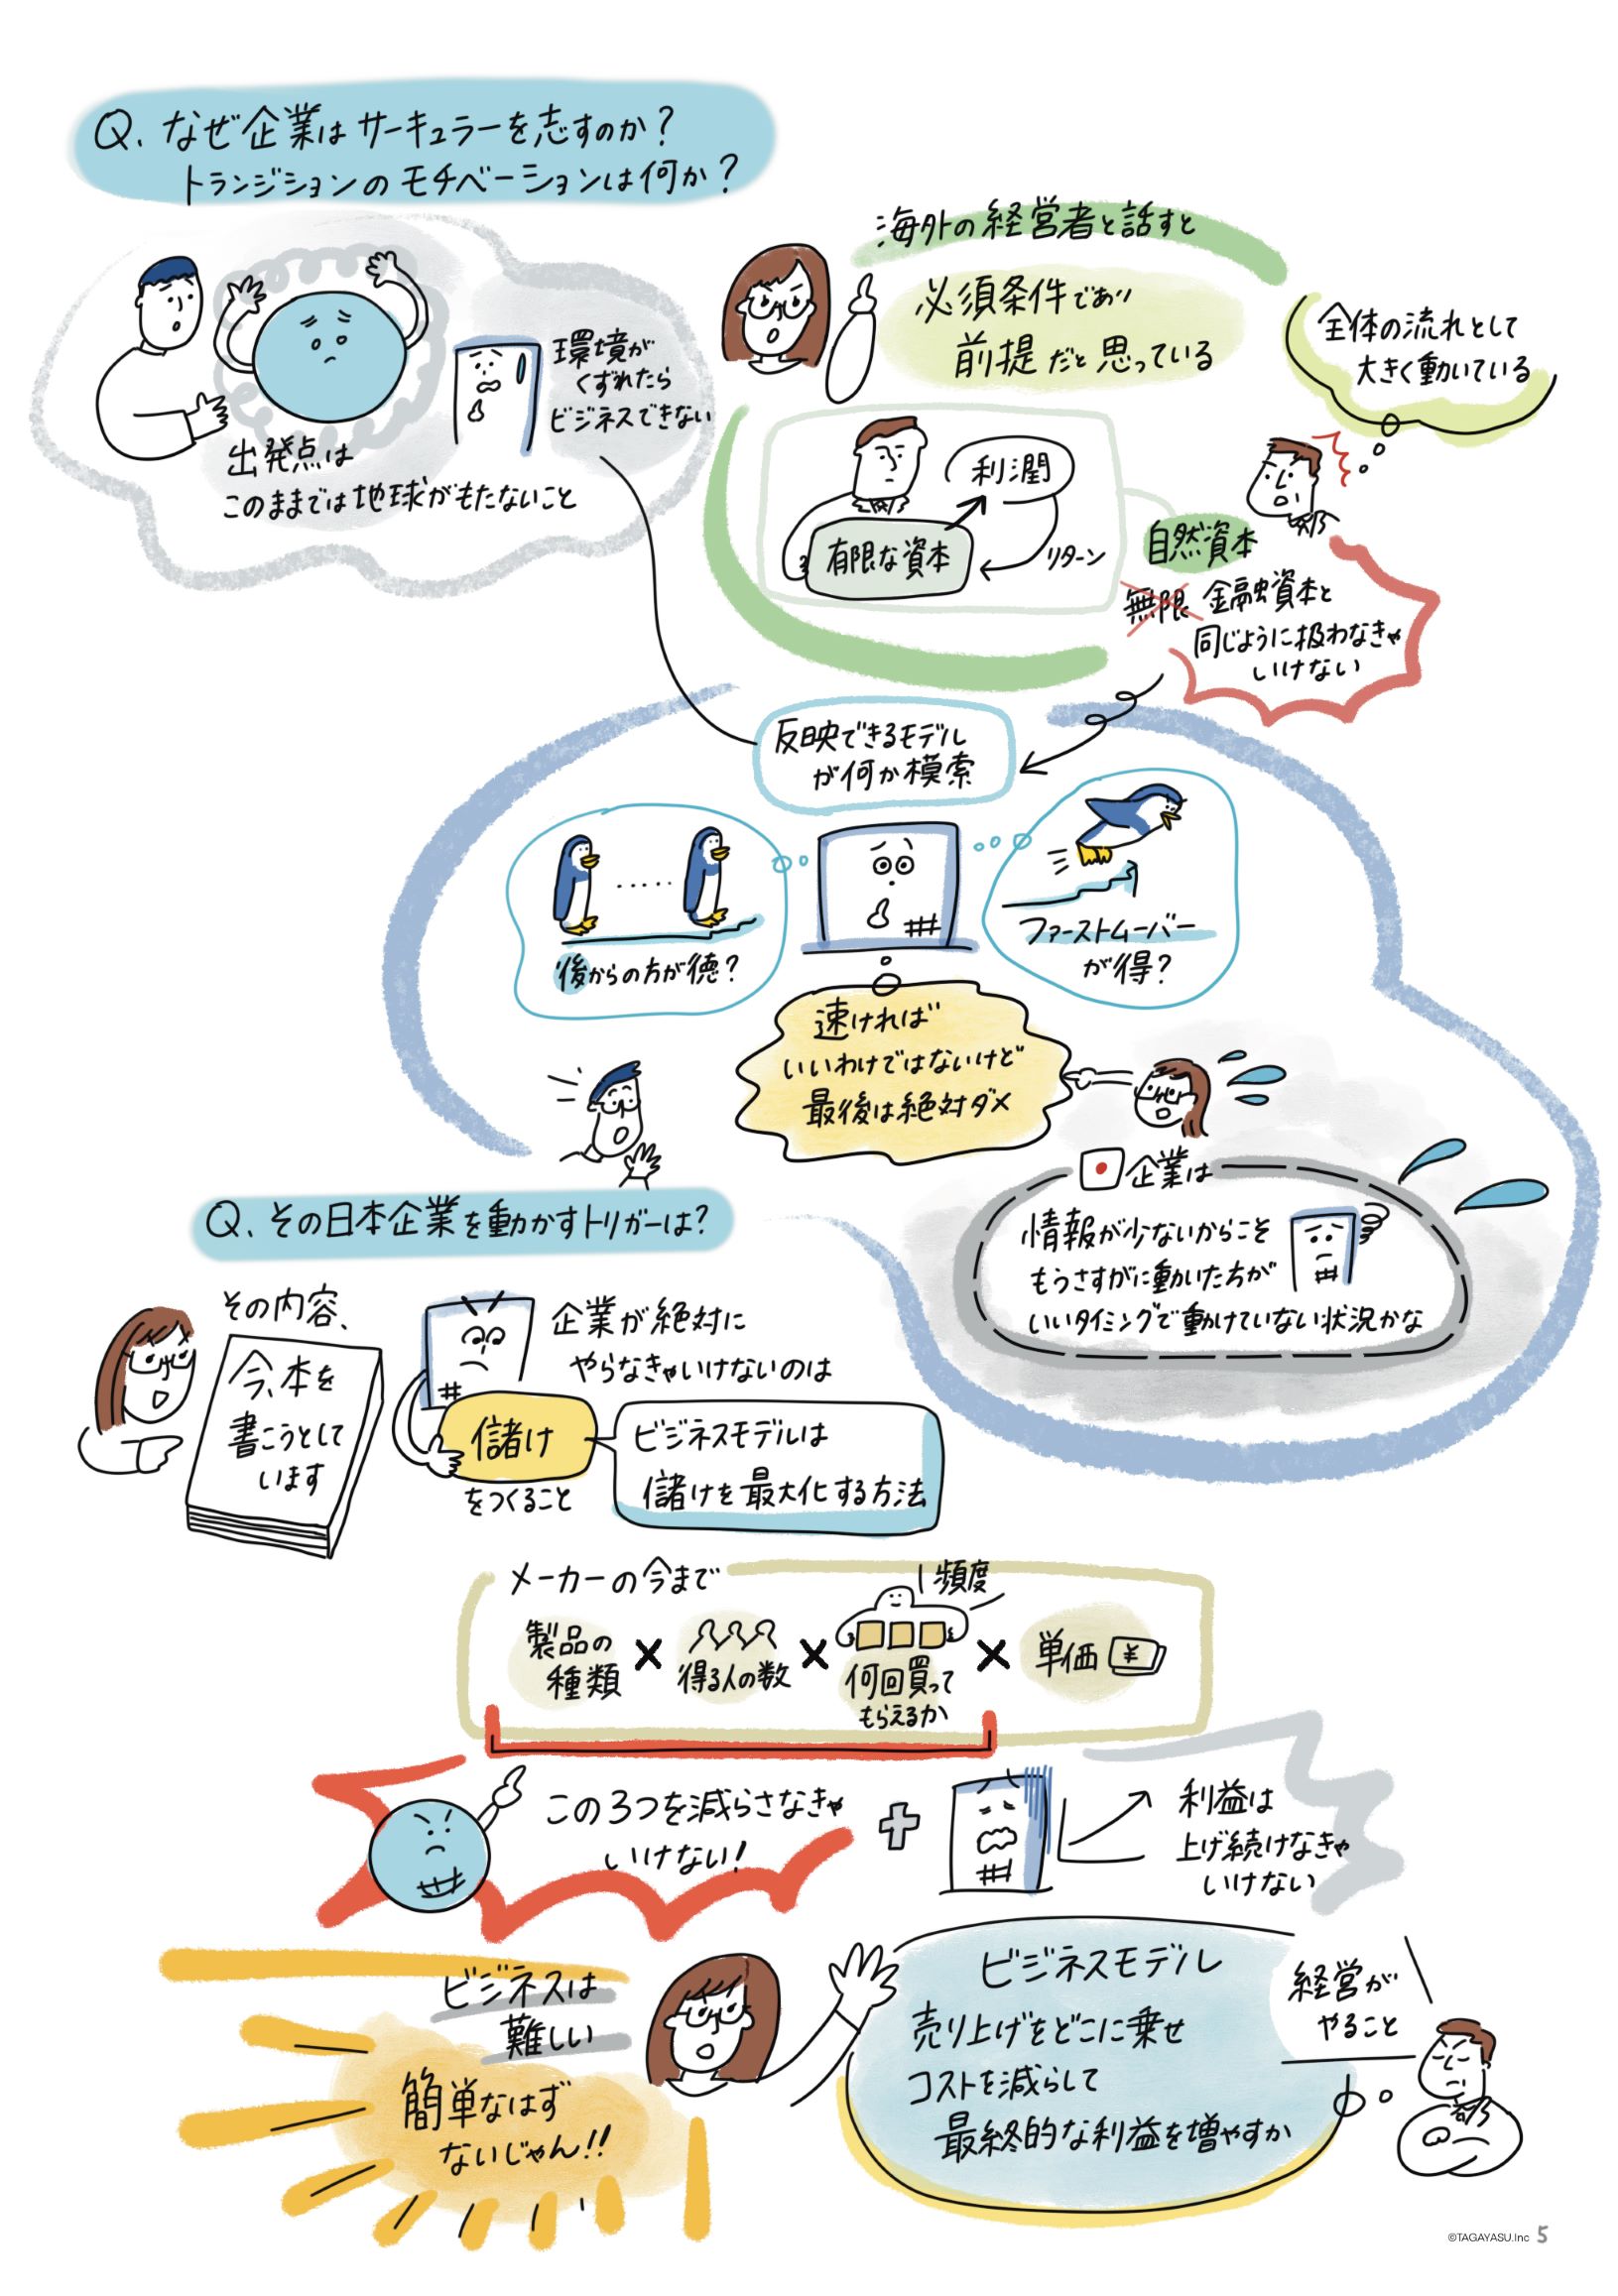 Q. なぜ企業はサーキュラーを志すのか？
トランジションのモチベーションは何か？
出発点は
このままでは地球がもたないこと
環境が
くずれたら
ビジネスできない
海外の経営者と話すと
必須条件であり
前提だと思っている
全体の流れとして
大きく動いている
利潤
有限な資本
リターン
自然資本
無限 金融資本と
同じように扱わなきゃ
いけない
反映できるモデル
が何か模索
後からの方が徳？
ファーストムーバー
が得？
速ければ
いいわけではないけど
最後は絶対ダメ
企業は
情報が少ないからこそ
もうさすがに動いた方が
いいタイミングで動けていない状況かな
Q. その日本企業を動かすトリガーは？
その内容、
今、本を
書こうとして
います
企業が絶対に
やらなきゃいけないのは
儲け
をつくること
ビジネスモデルは
儲けを最大化する方法
メーカーの今まで
製品の
種類
×
得る人の数
×
頻度
何回買って
もらえるか
×
単価 ¥
この3つを減らさなきゃ
いけない！
+
利益は
上げ続けなきゃ
いけない
ビジネスは
難しい
簡単なはず
ないじゃん!!
ビジネスモデル
売り上げをどこに乗せ
コストを減らして
最終的な利益を増やすか
経営が
やること
©TAGAYASU.Inc 5